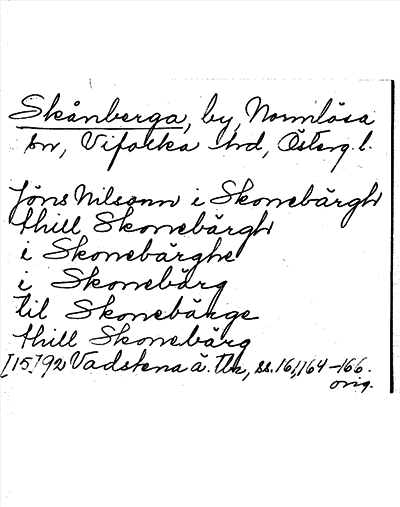 Skånberga, by, Normlösa
sn, Vifolka hd, Österg. l.
Jöns Nilsonn i Skonebärgh
thill Skonebärgh
i Skonebärghe
i Skonebärg
til Skonebärge
thill Skonebärg
[15]92 Vadstena ä. Tb, ss. 161, 164-166.
orig.